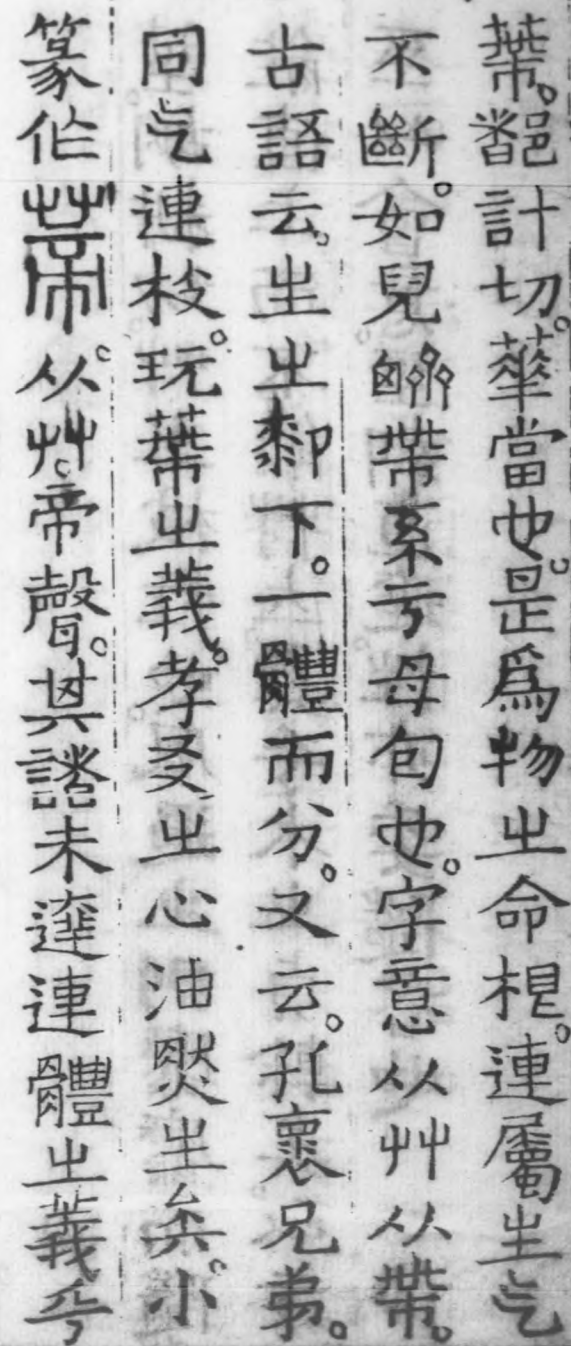 蔕。都計切。華當也。是爲物㞢命根。連屬生气
不斷。如兒臍帶系亏母包也。字意从艸从帶。
古語云。生㞢厀下。一體而分。又云。孔褱兄弟。
同气連枝。玩蔕㞢義。孝友㞢心油然生矣。小
篆作蒂。从艸。帝聲。其諸未達連體㞢義乎